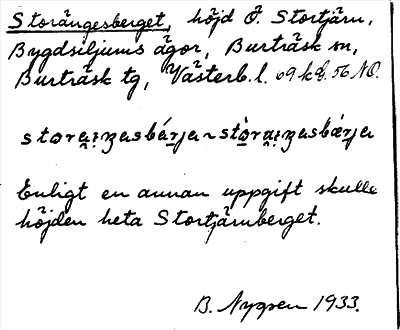 Storängesberget, höjd Ö. Stortjärn,
Bygdsiljums ägor, Burträsk sn,
Burträsk tg, Västerb. l. 69 k E. 56 NO.
Enligt en annan uppgift skulle
höjden heta Stortjärnberget.
B. 1933.